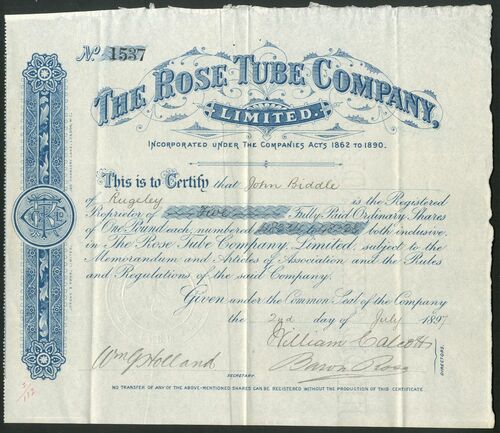 No 1537
THE ROSE TUBE COMPANY,
LIMITED.
INCORPORATED UNDER THE COMPANIES ACTS 1862 TO 1890.
This is to Certify that John Biddle
of Rugeley is the Registered
Proprietor of Five Fully Paid Ordinary Shares
of One Pound each, numbered both inclusive,
in The Rose Tube Company, Limited, subject to the
Memorandum and Articles of Association and the Rules
and Regulations of the said Company.
Given under the Common Seal of the Company
the 2nd day of July 1897
William Calcott
Wm G Holland
Baron Rose
DIRECTORS.
SECRETARY.
NO TRANSFER OF ANY OF THE ABOVE-MENTIONED SHARES CAN BE REGISTERED WITHOUT THE PRODUCTION OF THIS CERTIFICATE.